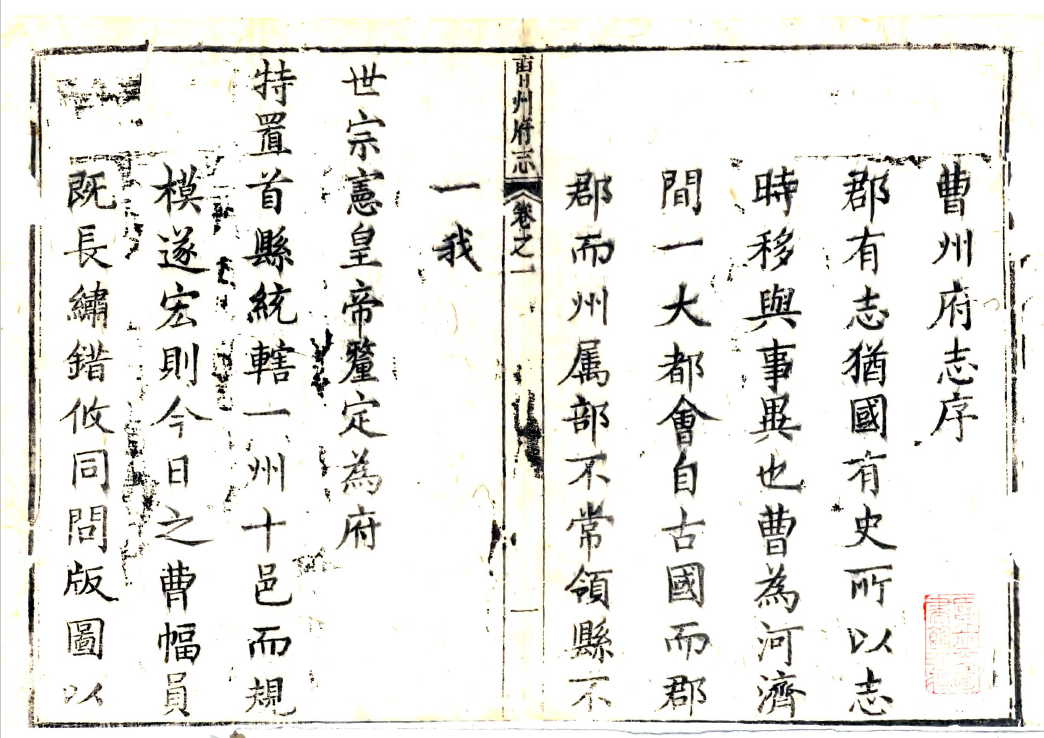 曹州府志序
郡有志猶國有史所以志
時移與事異也曹為河濟
間一大都會自古國而郡
郡而州属部不常領縣不
一我
曹州府志
卷之一
一
世宗憲皇帝釐定為府
特置首縣統轄一州十邑而規
模遂宏則今日之曹幅員
既長繡錯攸同問版圖以